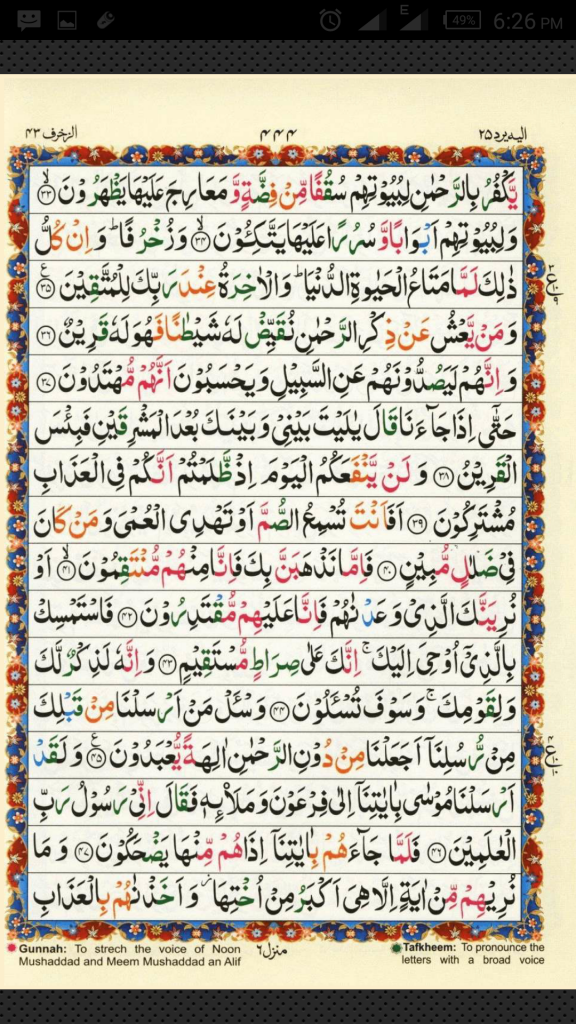 E
49%
6:26 PM
الیه یرد ۲۵
۴۴۴
الزخرف ۴۳
یَّكْفُرُ بِالرَّحْمٰنِ لِبُیُوْتِهِمْ سُقُفًا مِّنْ فِضَّةٍ وَّ مَعَارِجَ عَلَیْهَا یَظْهَرُوْنَ ﴿۳۳﴾ۙ
وَ لِبُیُوْتِهِمْ اَبْوَابًا وَّ سُرُرًا عَلَیْهَا یَتَّكِـُٔوْنَ ﴿۳۴﴾ۙ وَ زُخْرُفًا ؕ وَ اِنْ كُلُّ
ذٰلِكَ لَمَّا مَتَاعُ الْحَیٰوةِ الدُّنْیَا ؕ وَ الْاٰخِرَةُ عِنْدَ رَبِّكَ لِلْمُتَّقِیْنَ ﴿۳۵﴾ع
وَ مَنْ یَّعْشُ عَنْ ذِكْرِ الرَّحْمٰنِ نُقَیِّضْ لَهٗ شَیْطٰنًا فَهُوَ لَهٗ قَرِیْنٌ ﴿۳۶﴾
وَ اِنَّهُمْ لَیَصُدُّوْنَهُمْ عَنِ السَّبِیْلِ وَ یَحْسَبُوْنَ اَنَّهُمْ مُّهْتَدُوْنَ ﴿۳۷﴾
حَتّٰۤی اِذَا جَآءَنَا قَالَ یٰلَیْتَ بَیْنِیْ وَ بَیْنَكَ بُعْدَ الْمَشْرِقَیْنِ فَبِئْسَ
الْقَرِیْنُ ﴿۳۸﴾ وَ لَنْ یَّنْفَعَكُمُ الْیَوْمَ اِذْ ظَّلَمْتُمْ اَنَّكُمْ فِی الْعَذَابِ
مُشْتَرِكُوْنَ ﴿۳۹﴾ اَفَاَنْتَ تُسْمِعُ الصُّمَّ اَوْ تَهْدِی الْعُمْیَ وَ مَنْ كَانَ
فِیْ ضَلٰلٍ مُّبِیْنٍ ﴿۴۰﴾ فَاِمَّا نَذْهَبَنَّ بِكَ فَاِنَّا مِنْهُمْ مُّنْتَقِمُوْنَ ﴿۴۱﴾ۙ اَوْ
نُرِیَنَّكَ الَّذِیْ وَعَدْنٰهُمْ فَاِنَّا عَلَیْهِمْ مُّقْتَدِرُوْنَ ﴿۴۲﴾ فَاسْتَمْسِكْ
بِالَّذِیْۤ اُوْحِیَ اِلَیْكَ ۚ اِنَّكَ عَلٰی صِرَاطٍ مُّسْتَقِیْمٍ ﴿۴۳﴾ وَ اِنَّهٗ لَذِكْرٌ لَّكَ
وَ لِقَوْمِكَ ۚ وَ سَوْفَ تُسْـَٔلُوْنَ ﴿۴۴﴾ وَ سْـَٔلْ مَنْ اَرْسَلْنَا مِنْ قَبْلِكَ
مِنْ رُّسُلِنَاۤ اَجَعَلْنَا مِنْ دُوْنِ الرَّحْمٰنِ اٰلِهَةً یُّعْبَدُوْنَ ﴿۴۵﴾ع وَ لَقَدْ
اَرْسَلْنَا مُوْسٰی بِاٰیٰتِنَاۤ اِلٰی فِرْعَوْنَ وَ مَلَاۡىِٕهٖ فَقَالَ اِنِّیْ رَسُوْلُ رَبِّ
الْعٰلَمِیْنَ ﴿۴۶﴾ فَلَمَّا جَآءَهُمْ بِاٰیٰتِنَاۤ اِذَا هُمْ مِّنْهَا یَضْحَكُوْنَ ﴿۴۷﴾ وَ مَا
نُرِیْهِمْ مِّنْ اٰیَةٍ اِلَّا هِیَ اَكْبَرُ مِنْ اُخْتِهَا ؗ وَ اَخَذْنٰهُمْ بِالْعَذَابِ
Gunnah: To strech the voice of Noon
Mushaddad and Meem Mushaddad an Alif
منزل ۶
Tafkheem: To pronounce the
letters with a broad voice